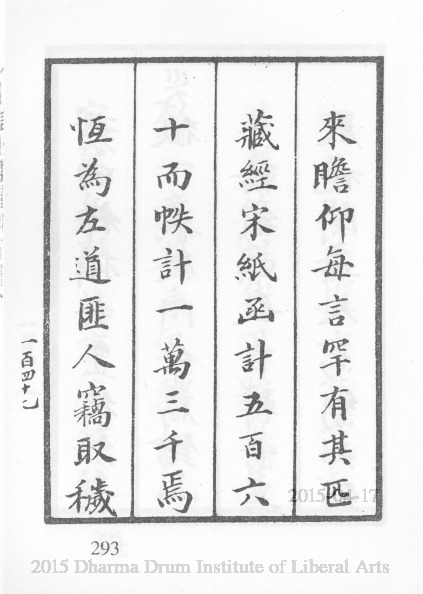 來瞻仰每言罕有其匹
藏經宋紙函計五百六
十而帙計一萬三千焉
恆為左道匪人竊取穢
293
2015-04-17
2015 Dharma Drum Institute of Liberal Arts